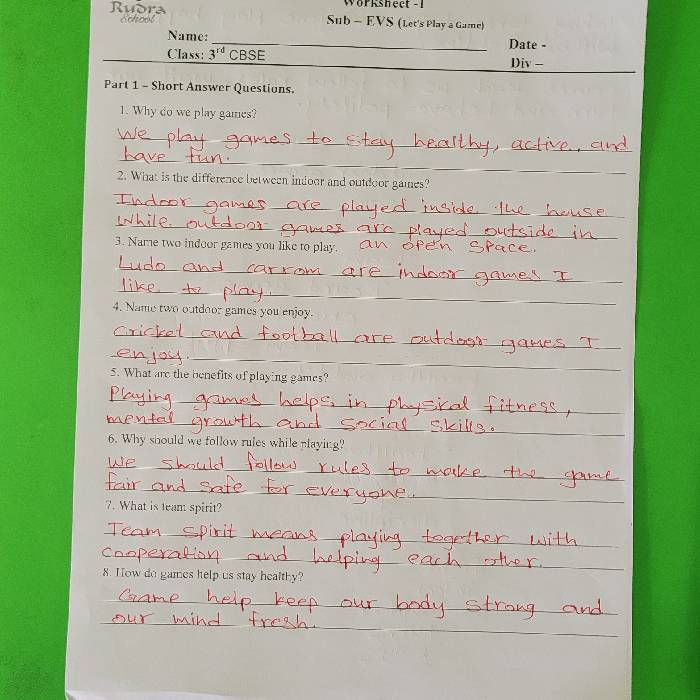 Rudra
School
Worksheet -1
Sub – EVS (Let's Play a Game)
Name:
Date -
Class: 3rd CBSE
Div –
Part 1 – Short Answer Questions.
1. Why do we play games?
We play games to stay healthy, active, and
have fun.
2. What is the difference between indoor and outdoor games?
Indoor games are played inside the house
while outdoor games are played outside in
an open space.
3. Name two indoor games you like to play.
Ludo and carrom are indoor games I
like to play.
4. Name two outdoor games you enjoy.
Cricket and football are outdoor games I
enjoy.
5. What are the benefits of playing games?
Playing games helps in physical fitness,
mental growth and social skills.
6. Why should we follow rules while playing?
We should follow rules to make the game
fair and safe for everyone.
7. What is team spirit?
Team spirit means playing together with
cooperation and helping each other.
8. How do games help us stay healthy?
Game help keep our body strong and
our mind fresh.